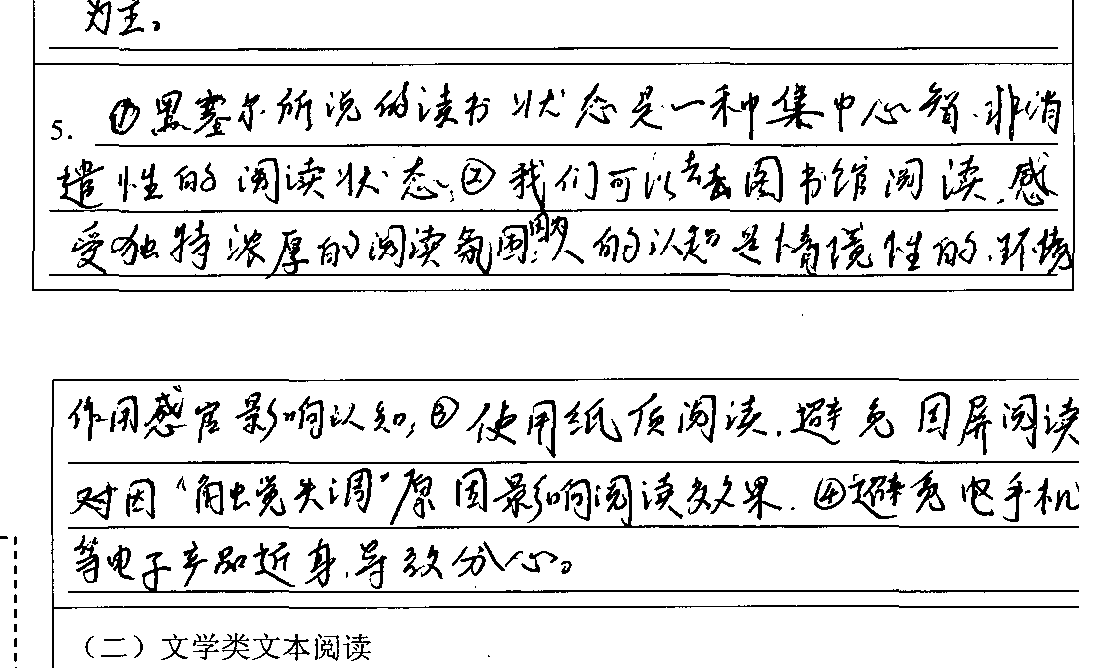 为主。
5. ①黑塞尔所说的读书状态是一种集中心智、非消
遣性的阅读状态;②我们可以去图书馆阅读,感
受独特浓厚的阅读氛围,因为人的认知是情境性的,环境
作用感官影响认知;③使用纸质阅读,避免因屏阅读
时因“触觉失调”原因影响阅读效果.④避免电手机
等电子产品近身,导致分心。
(二)文学类文本阅读